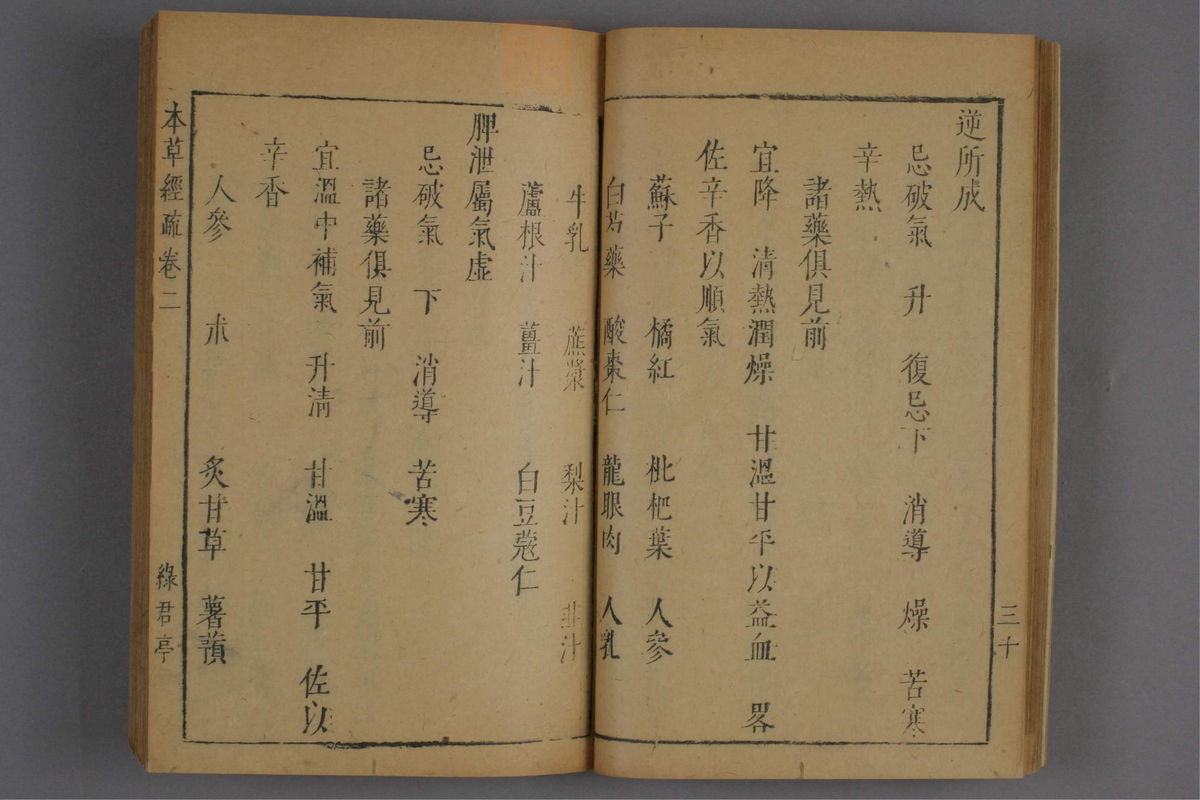 逆所成
忌破氣　升　復忌下　消導　燥　苦寒
辛熱
諸藥俱見前
宜降　清熱潤燥　甘溫甘平以益血　畧
佐辛香以順氣
蘇子　橘紅　枇杷葉　人參
白芍藥　酸棗仁　龍眼肉　人乳
三十
牛乳　蔗漿　梨汁　韭汁
蘆根汁　薑汁　白豆蔻仁
脾泄屬氣虛
忌破氣　下　消導　苦寒
諸藥俱見前
宜溫中補氣　升清　甘溫　甘平　佐以
辛香
人參　朮　炙甘草　薯蕷
本草經疏　卷二　綠君亭